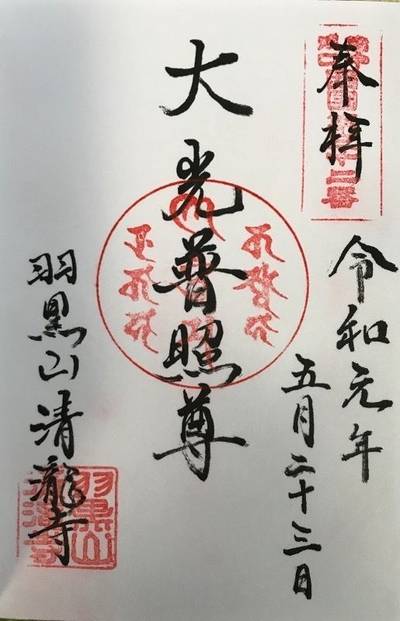 奉拝
令和元年
五月二十三日
大光普照尊
羽黒山清瀧寺
羽黒山
清瀧寺